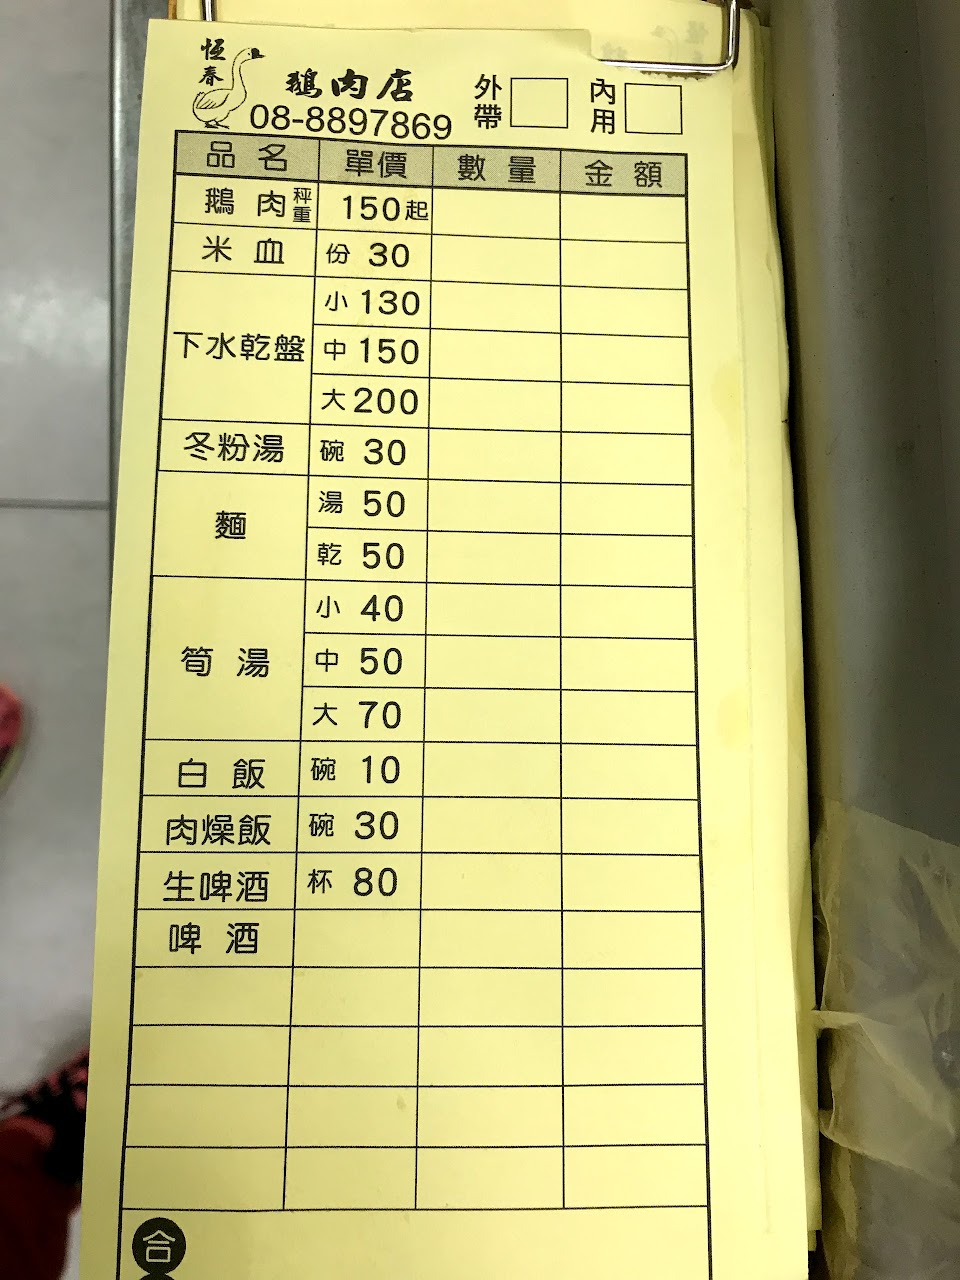 恆春
鵝肉店
08-8897869
外帶
內用
品名 單價 數量 金額
鵝肉 秤重 150起
米血 份 30
下水乾盤 小 130
中 150
大 200
冬粉湯 碗 30
麵 湯 50
乾 50
筍湯 小 40
中 50
大 70
白飯 碗 10
肉燥飯 碗 30
生啤酒 杯 80
啤酒
合